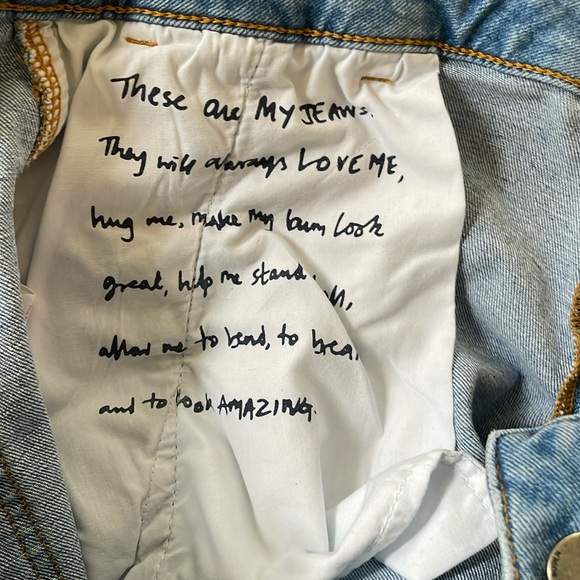 These are MY JEANS.
They will always LOVE ME,
hug me, make my bum look
great, help me stand
allow me to bend, to
and to look AMAZING.